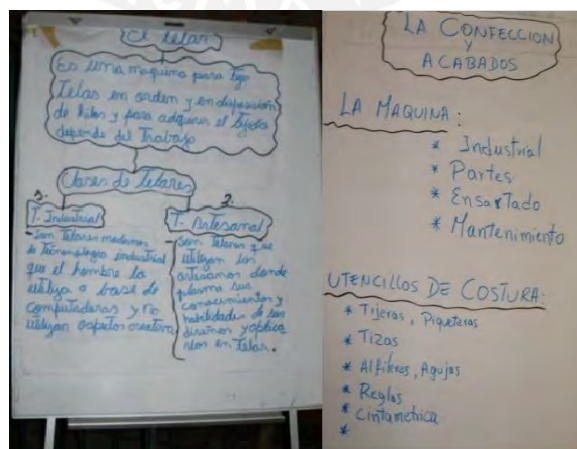 El telar
Es una maquina para tejer
Telas en orden y en disposicion
de hilos y para adquirir el tejido
depende del Trabajo
Clases de Telares
1.
T. Industrial
- Son Telares modernos
de tecnonologia industrial
que el hombre lo
utiliza a base de
computadoras y no
utilizan aspectos creativa
2.
T. Artesanal
- Son Telares que
utilizan los
artesanos donde
plasma sus
conocimientos y
habilidades de sus
diseños y
en Telar.
LA CONFECCION
Y
ACABADOS
LA MAQUINA:
* Industrial
* Partes
* Ensartado
* Mantenimiento
UTENCILLOS DE COSTURA:
* Tijeras, Piqueteras
* Tizas
* Alfileres, Agujas
* Reglas
* Cintametrica
*